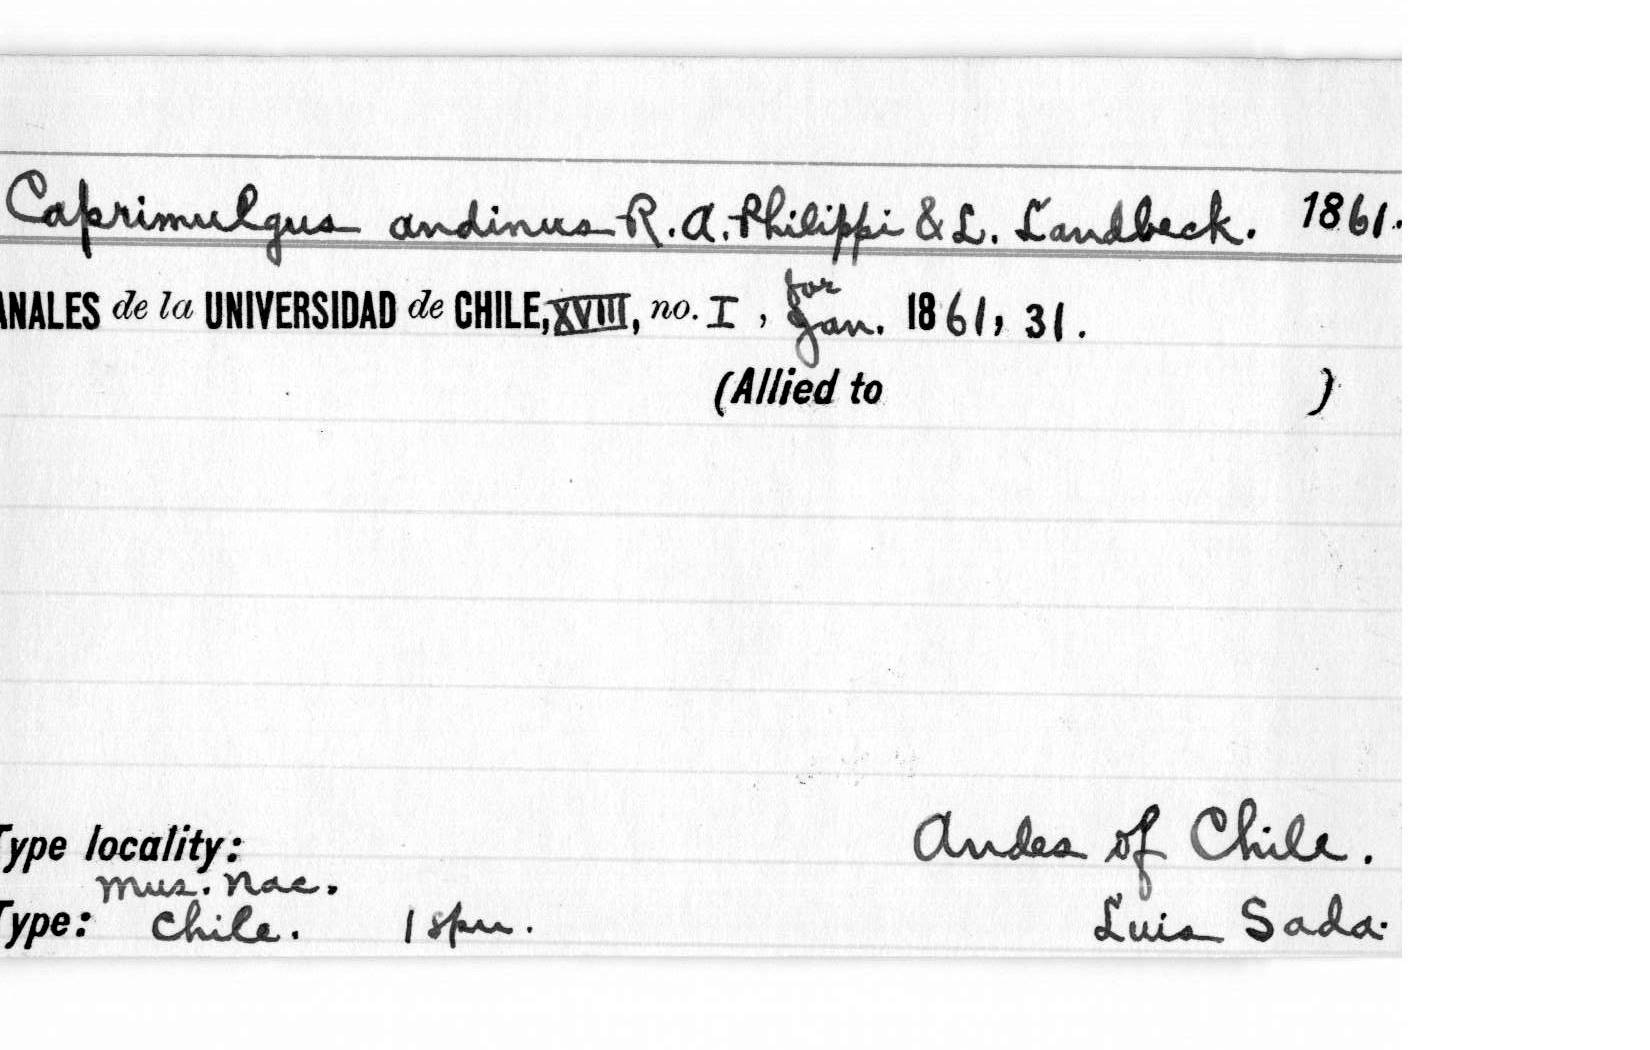 Caprimulgus andinus R. A. Philippi & L. Landbeck. 1861.
ANALES de la UNIVERSIDAD de CHILE, XVIII, no. I, for Jan. 1861, 31.
(Allied to )
Type locality: Andes of Chile.
Mus. Nac.
Type: Chile. 1 spm. Luis Sada.